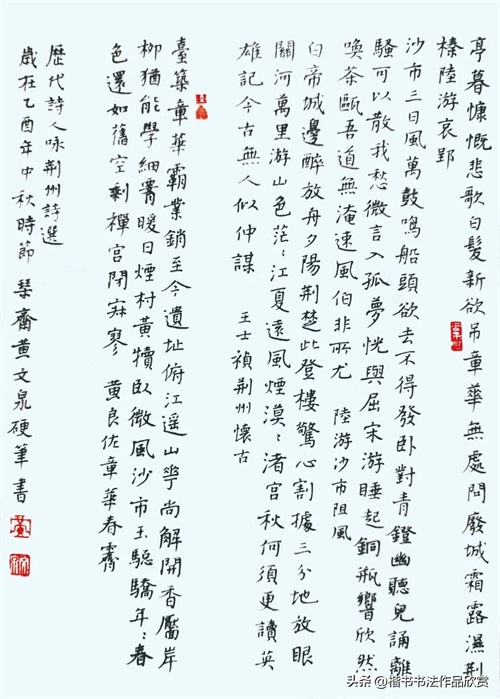 亭暮慷慨悲歌白髮新欲吊章華無處問廢城霜露濕荊
榛陸游哀郢
沙市三日風萬鼓鳴船頭欲去不得發卧對青鐙幽聽兒誦離
騷可以散我愁微言入孤夢恍與屈宋游睡起銅瓶響欣然
喚茶甌吾道無淹速風伯非所尤 陸游沙市阻風
白帝城邊醉放舟夕陽荊楚此登樓驚心割據三分地放眼
關河萬里游山色茫〻江夏遠風煙漠〻渚宮秋何須更讀英
雄記今古無人似仲謀 王士禎荊州懷古
臺築章華霸業銷至今遺址俯江遥山尚解開香靨岸
柳猶能學細暖日煙村黃犢卧微風沙市玉驄驕年〻春
色還如舊空剩禪宮閉寂寥 黄良佐章華春霽
歷代詩人咏荊州詩選
歲在乙酉年中秋時節 琹齋黄文泉硬筆書
头条 @楷书书法作品欣赏